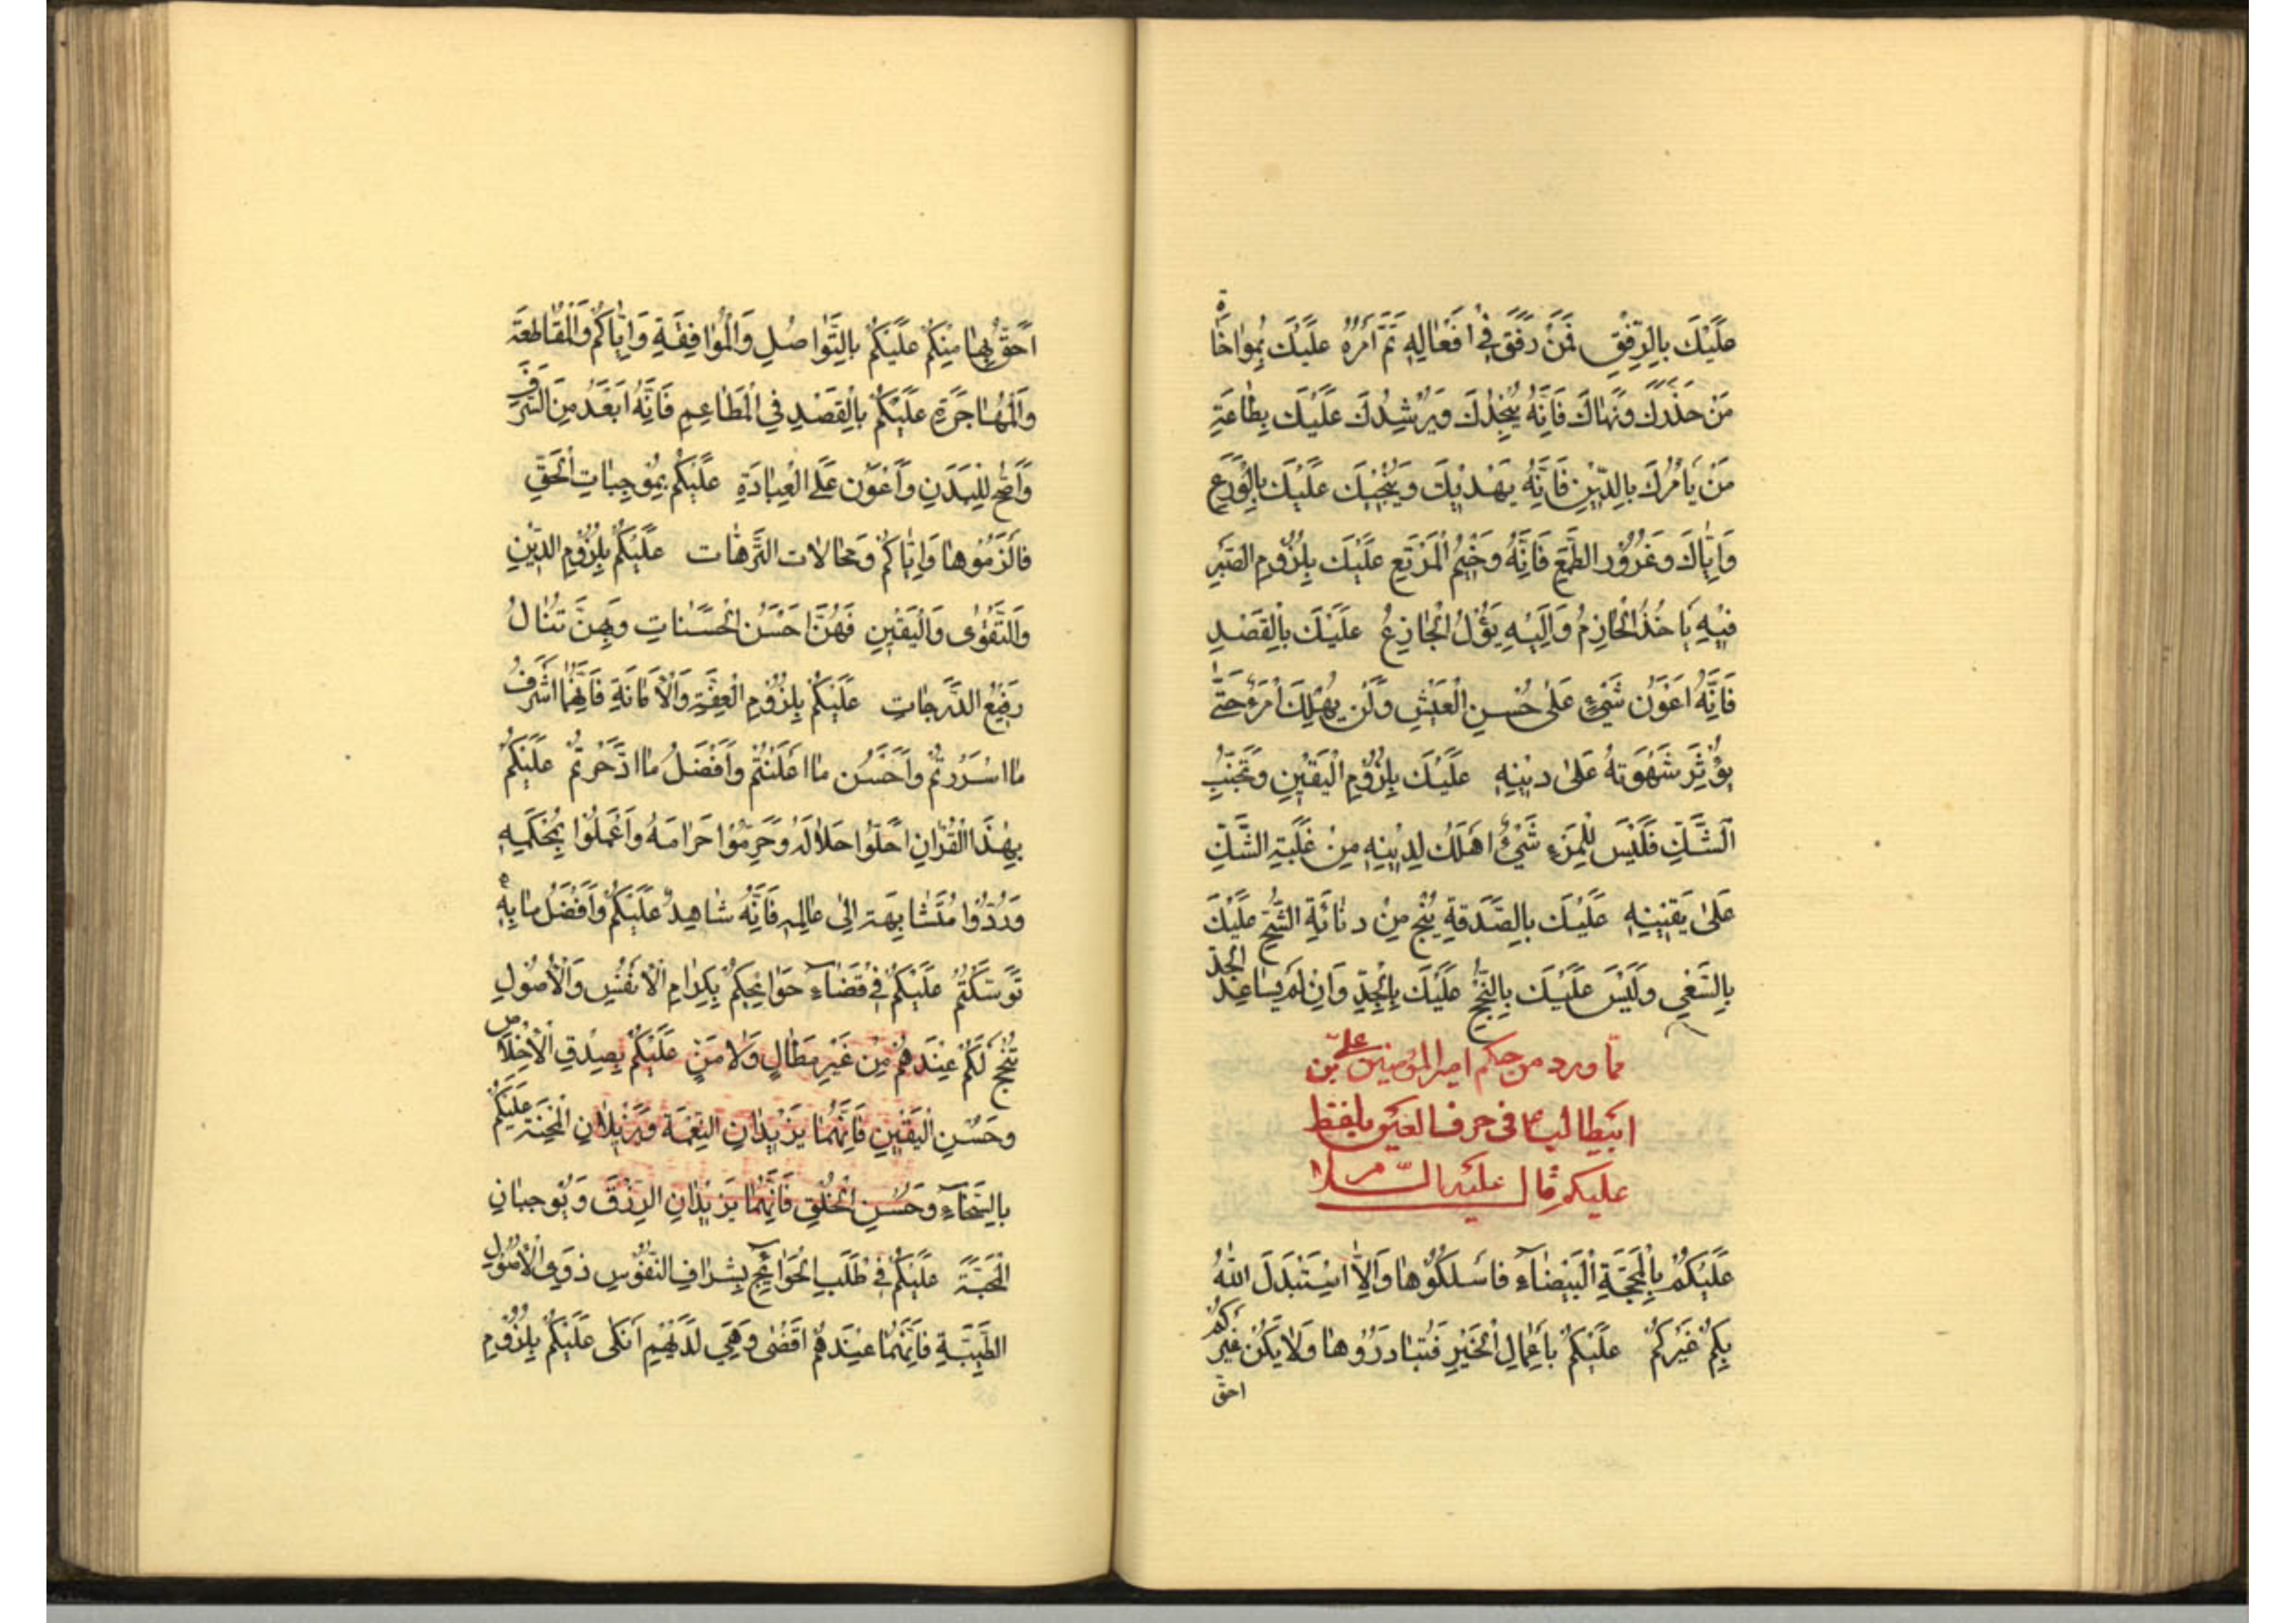 عَلَيْكَ بِالرِّفْقِ فَمَنْ رَفَقَ فِي اَفْعَالِهِ تَمَّ اَمْرُهُ عَلَيْكَ بِمُواخَاةِ
مَنْ حَذَّرَكَ وَنَهَاكَ فَاِنَّهُ يُنْجِدُكَ وَيُرْشِدُكَ عَلَيْكَ بِطَاعَةِ
مَنْ يَأْمُرُكَ بِالدِّيْنِ فَاِنَّهُ يَهْدِيْكَ وَيُنْجِيْكَ عَلَيْكَ بِالْوَرَعِ
وَاِيَّاكَ وَغُرُوْرَ الطَّمَعِ فَاِنَّهُ وَخِيْمُ الْمَرْتَعِ عَلَيْكَ بِلُزُوْمِ الصَّبْرِ
فَبِهِ يَاْخُذُ الْحَازِمُ وَاِلَيْهِ يَؤُلُ الْجَازِعُ عَلَيْكَ بِالْقَصْدِ
فَاِنَّهُ اَعْوَنُ شَيْءٍ عَلٰى حُسْنِ الْعَيْشِ وَلَنْ يَهْلِكَ امْرَءٌ حَتّٰى
يُؤْثِرَ شَهْوَتَهُ عَلٰى دِيْنِهِ عَلَيْكَ بِلُزُوْمِ الْيَقِيْنِ وَتَجَنُّبِ
الشَّكِّ فَلَيْسَ لِلْمَرْءِ شَيْءٌ اَهْلَكَ لِدِيْنِهِ مِنْ غَلَبَةِ الشَّكِّ
عَلٰى يَقِيْنِهِ عَلَيْكَ بِالصَّدَقَةِ تَنْجُ مِنْ دَنَائَةِ الشُّحِّ عَلَيْكَ
بِالسَّعْيِ وَلَيْسَ عَلَيْكَ بِالنُّجْحِ عَلَيْكَ بِالْجِدِّ وَاِنْ لَمْ يُسَاعِدْ الْجَدُّ
مما ورد من حكم امير المؤمنين علي بن
ابيطالب ع في حرف العين بلفظ
عليكم قال عليه السلام
عَلَيْكُمْ بِالْمَحَجَّةِ الْبَيْضَآءِ فَاسْلُكُوْهَا وَاِلَّا اسْتَبْدَلَ اللهُ
بِكُمْ غَيْرَكُمْ عَلَيْكُمْ بِاَعْمَالِ الْخَيْرِ فَتَبَادَرُوْهَا وَلَا يَكُنْ غَيْرُكُمْ
احق
اَحَقَّ بِهَا مِنْكُمْ عَلَيْكُمْ بِالتَّوَاصُلِ وَالْمُوَافِقَةِ وَاِيَّاكُمْ وَالْمُقَاطَعَةَ
وَالْمُهَاجَرَةِ عَلَيْكُمْ بِالْقَصْدِ فِي الْمَطَاعِمِ فَاِنَّهُ اَبْعَدُ مِنَ السَّرَفِ
وَاَصَحُّ لِلْبَدَنِ وَاَعْوَنُ عَلَى الْعِبَادَةِ عَلَيْكُمْ بِمُوْجِبَاتِ الْحَقِّ
فَالْزَمُوْهَا وَاِيَّاكُمْ وَمَحَالَاتِ التَّرَّهَاتِ عَلَيْكُمْ بِلُزُوْمِ الدِّيْنِ
وَالتَّقْوٰى وَالْيَقِيْنِ فَهُنَّ اَحْسَنُ الْحَسَنَاتِ وَبِهِنَّ تُنَالُ
رَفِيْعُ الدَّرَجَاتِ عَلَيْكُمْ بِلُزُوْمِ الْعِفَّةِ وَالْاَمَانَةِ فَاِنَّهُمَا اَشْرَفُ
مَا اَسْرَرْتُمْ وَاَحْسَنُ مَا اَعْلَنْتُمْ وَاَفْضَلُ مَا ادَّخَرْتُمْ عَلَيْكُمْ
بِهٰذَا الْقُرْاٰنِ اَحِلُّوا حَلَالَهُ وَحَرِّمُوْا حَرَامَهُ وَاعْمَلُوْا بِمُحْكَمِهِ
وَرُدُّوْا مُتَشَابِهَهُ اِلٰى عَالِمِهِ فَاِنَّهُ شَاهِدٌ عَلَيْكُمْ وَاَفْضَلُ مَا بِهِ
تَوَسَّلْتُمْ عَلَيْكُمْ فِيْ قَضَآءِ حَوَائِجِكُمْ بِكِرَامِ الْاَنْفُسِ وَالْاُصُوْلِ
تُنْجَحْ لَكُمْ عِنْدَهُمْ مِنْ غَيْرِ مَطَالٍ وَلَا مَنٍّ عَلَيْكُمْ بِصِدْقِ الْاِخْلَاصِ
وَحُسْنِ الْيَقِيْنِ فَاِنَّهُمَا يَزِيْدَانِ النِّعْمَةَ وَيُزِيْلَانِ الْمِحْنَةَ عَلَيْكُمْ
بِالسَّخَآءِ وَحُسْنِ الْخُلْقِ فَاِنَّهُمَا يَزِيْدَانِ الرِّزْقَ وَيُوْجِبَانِ
الْمَحَبَّةَ عَلَيْكُمْ فِيْ طَلَبِ الْحَوَائِجِ بِشِرَافِ النُّفُوْسِ ذَوِي الْاُصُوْلِ
الطَّيِّبَةِ فَاِنَّهَا عِنْدَهُمْ اَقْضٰى وَهِيَ لَدَيْهِمْ اَزْكٰى عَلَيْكُمْ بِلُزُوْمِ